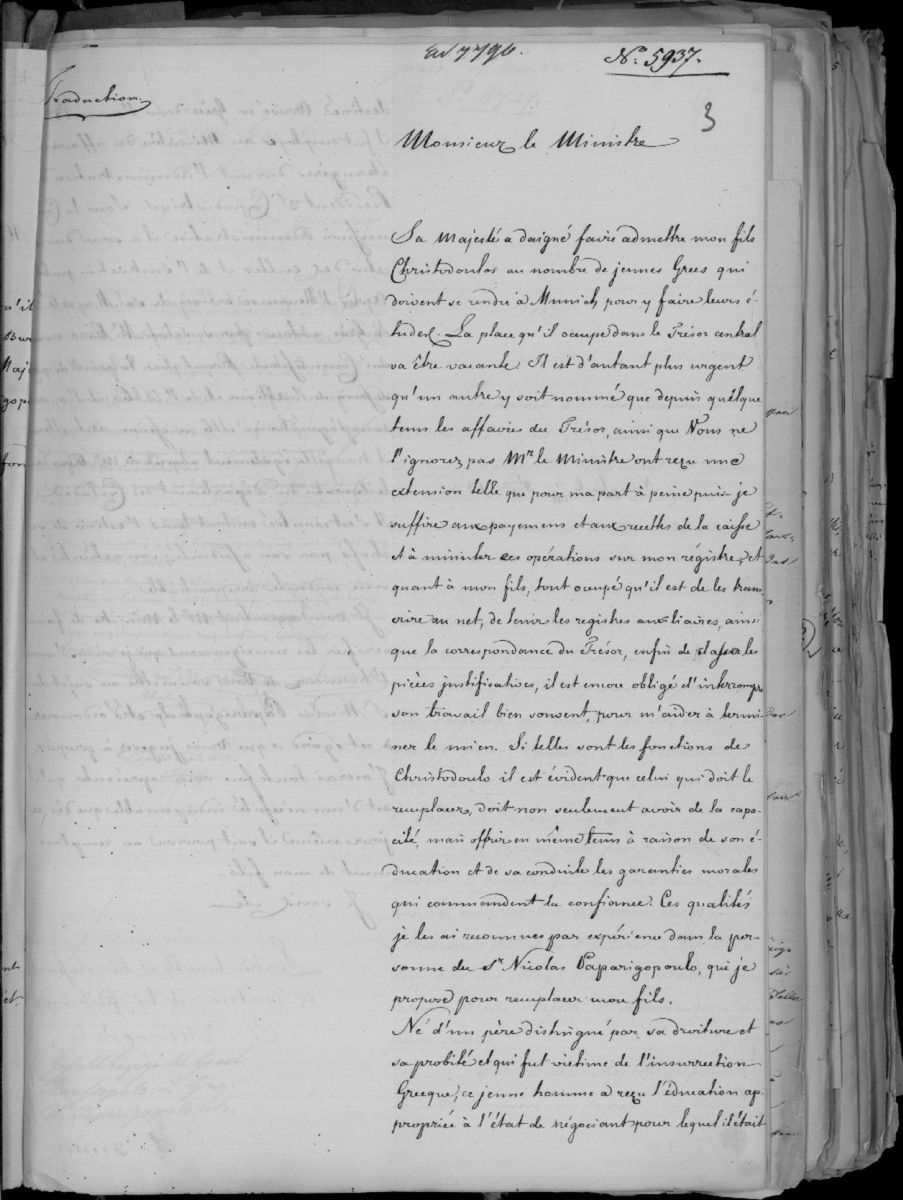 ad 7796.
No. 5937.
Traduction.
3
Monsieur le Ministre
Sa Majesté a daigné faire admettre mon fils
Christodoulos au nombre de jeunes Grecs qui
doivent se rendre à Munich pour y faire leurs é-
tudes. La place qu'il ocupe dans le Trésor central
va être vacante. Il est d'autant plus urgent
qu'un autre y soit nommé que depuis quelque
tems les affaires du Trésor, ainsi que Vous ne
l'ignorez pas Mr le Ministre ont reçu une
extension telle que pour ma part à peine puis-je
suffire aux payemens et aux recettes de la caisse
et à minuter ces opérations sur mon régistre, et
quant à mon fils, tout occupé qu'il est de les trans
crire au net, de tenir les registres auxiliaires, ainsi
que la correspondance du Trésor, enfin de classer les
pièces justificatives, il est encore obligé d'interrompre
son travail bien souvent, pour m'aider à termi-
ner le mien. Si telles sont les fonctions de
Christodoulo il est évident que celui qui doit le
remplacer, doit non seulement avoir de la capa-
cité, mais offrir en même tems à raison de son é-
ducation et de sa conduite les garanties morales
qui commandent la confiance. Ces qualités
je les ai reconnues par expérience dans la per-
sonne du Sr Nicolas Paparigopoulo, que je
propose pour remplacer mon fils.
Né d'un père distingué par sa droiture et
sa probité et qui fut victime de l'insurrection
Grecque, ce jeune homme a reçu l'éducation ap-
propriée à l'état de négociant pour lequel il était